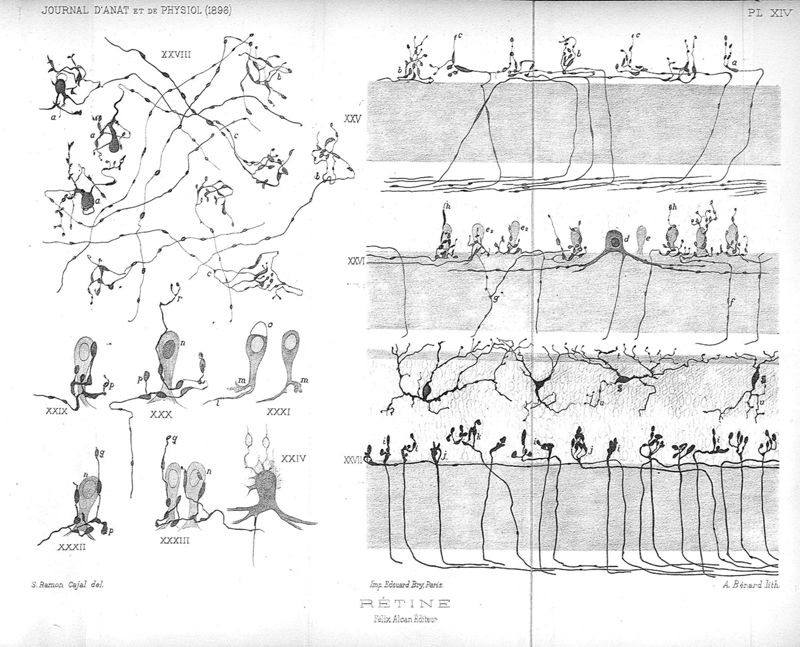 JOURNAL D'ANAT ET DE PHYSIOL (1896)
PL XIV
XXVIII
a
a
a
b
c
c
XXV
b
c
b
c
a
XXVI
h
e₂
e₂
d
e
h
e
g
f
r
n
p
p
o
m
m
l
XXIX
XXX
XXXI
S
S
u
u
XXVII
i
j
k
i
j
i
i
g
n
p
g
n
XXIV
XXXII
XXXIII
S. Ramon Cajal del.
Imp. Edouard Bry, Paris.
A. Bérard lith.
RÉTINE
Félix Alcan Éditeur